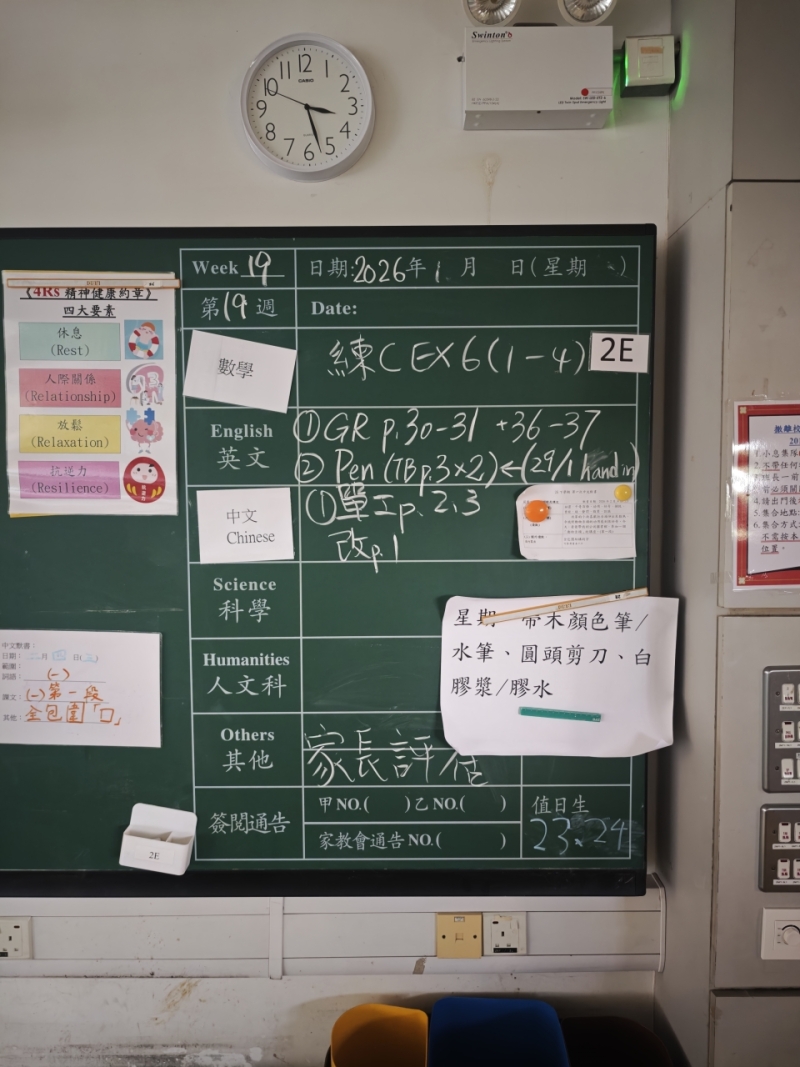 12
11
1
10
2
CASIO
9
3
8
4
7
6
5
Swinton's
Week 19
日期:2026年1月 日(星期 )
第19週
Date:
《4Rs 精神健康約章》
四大要素
休息
(Rest)
人際關係
(Relationship)
放鬆
(Relaxation)
抗逆力
(Resilience)
數學
練C EX6(1-4)
2E
English
英文
① GR p.30-31 +36-37
② Pen (TB p.3×2) ← (29/1 hand in)
中文
Chinese
① 單工p.2,3
改p.1
Science
科學
Humanities
人文科
星期一帶木顏色筆/
水筆、圓頭剪刀、白
膠漿/膠水
中文默書:
日期: 月 日( )
範圍:
詞語: (一)
課文: (一)第一段
其他: 全包圍「囗」
Others
其他
家長評估
簽閱通告
甲NO.( )乙NO.( )
家教會通告NO.( )
值日生
23、24
2E
1.小息集隊
2.不帶任何
3.班長一前
5.集合地點
6.集合方式
不需按本
位置。